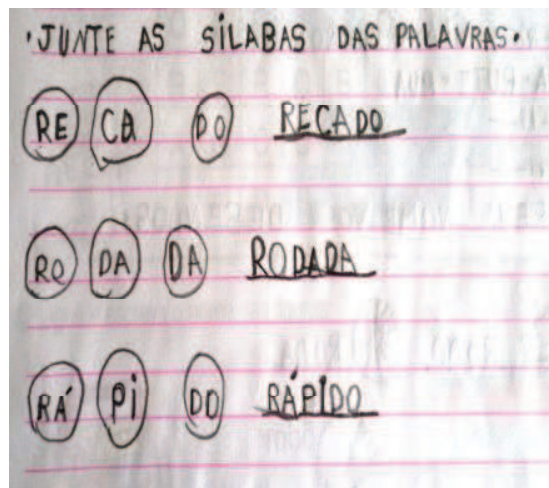 ·JUNTE AS SÍLABAS DAS PALAVRAS·
RE CA DO RECADO
RO DA DA RODADA
RÁ Pi DO RÁPIDO